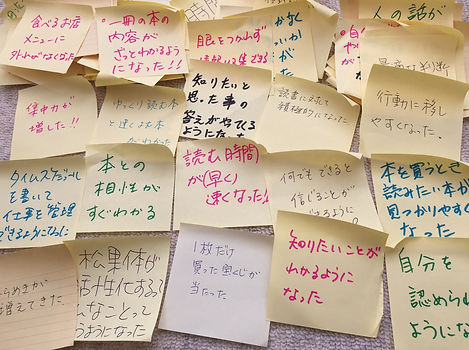 食べるお店
メニューに
一冊の本の
内容が
ざっとわかるよう
になった!!
眼をつかれず
人の話が
集中力が
増した!!
ゆっくり読む本
と速くよむ本
知りたいと
思った事の
答えがやってくる
ようになった
読書に対して
積極的になった
行動に移し
やすくなった。
を書いて
仕事を管理
できるようになった
本との
相性が
すぐわかる
読む時間
が(早く)
速くなった!
何でもできると
信じることが
できるように
本を買うとき
読みたい本が
見つかりやすく
なった
らめきが
増えてきた
松果体が
活性化する
なことって
ようになった
1枚だけ
買った宝くじが
当たった
知りたいことが
わかるように
なった
自分を
認められ
ようにな